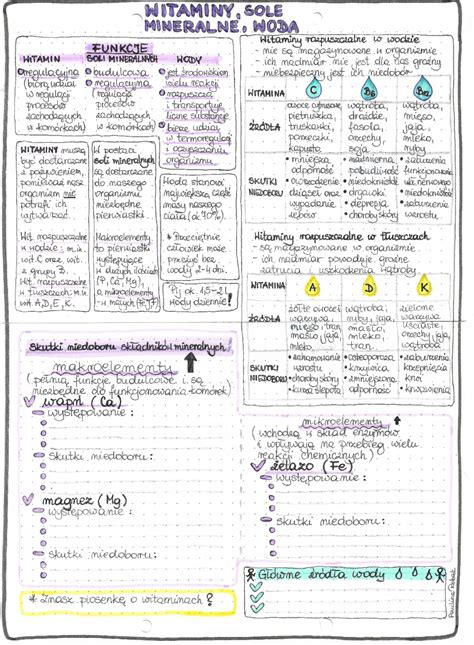 WITAMINY, SOLE
MINERALNE, WODA
FUNKCJE
WITAMIN
regulacyjna
(biorą udział
w regulacji
procesów
zachodzących
w komórkach)
SOLI MINERALNYCH
budulcowa
regulacyjna
(regulacja
procesów
zachodzących
w komórkach)
WODY
jest środowiskiem
wielu reakcji
rozpuszcza
i transportuje
liczne substancje
bierze udział
w termoregulacji
i oczyszczaniu
organizmu.
WITAMINY muszą
być dostarczane
z pożywieniem,
ponieważ nasz
organizm nie
potrafi ich
wytwarzać.
Wit. rozpuszczalne
w wodzie: m.in.
wit. C oraz wit.
z grupy B.
Wit. rozpuszczalne
w tłuszczach: m.in
wit. A, D, E, K.
W postaci
soli mineralnych
są dostarczane
do naszego
organizmu
niezbędne
pierwiastki.
Makroelementy
to pierwiastki
występujące
w dużych ilościach
(P, Ca, Mg),
a mikroelementy
- w małych
Woda stanowi
największą część
masy naszego
ciała (ok. 70%).
* Przeciętnie
człowiek może
przeżyć bez
wody 2-4 dni.
Pij ok. 1,5-2 l
wody dziennie!
Witaminy rozpuszczalne w wodzie
- nie są magazynowane w organizmie
- ich nadmiar nie jest dla nas groźny
niebezpieczny jest ich niedobór
WITAMINA C B6 B12
ŹRÓDŁA
owoce cytrusowe,
pietruszka,
truskawki,
porzeczki,
kapusta
wątroba,
drożdże,
fasola,
orzechy,
soja
wątroba,
mięso,
jaja,
mleko,
ryby
SKUTKI
NIEDOBORU
• mniejsza
odporność
• krwawienie
dziąseł oraz
wypadanie
zębów
• nadmierna
pobudliwość
• niedokrwistość
• drgawki,
depresja
• choroby skóry
• zaburzenia
funkcjonowania
ukł. nerwowego
• niedokrwistość
• zaburzenia
wzrostu.
Witaminy rozpuszczalne w tłuszczach
- są magazynowane w organizmie
- ich nadmiar powoduje groźne
zatrucia i uszkodzenia wątroby
WITAMINA A D K
ŹRÓDŁA
żółte owoce i
warzywa,
mięso, tran,
masło, jaja,
mleko
wątroba,
ryby, jaja,
masło,
mleko,
tran
zielone
warzywa
liściaste,
orzechy,
jaja
SKUTKI
NIEDOBORU
• zahamowanie
wzrostu
• choroby skóry
• kurza ślepota
• osteoporoza,
• krzywica
• zmniejszona
odporność
• zaburzenia
krzepnięcia
krwi
• krwawienia
Skutki niedoboru składników mineralnych
makroelementy
(pełnią funkcje budulcowe i są
niezbędne do funkcjonowania komórek)
wapń (Ca)
występowanie:
skutki niedoboru:
magnez (Mg)
występowanie:
skutki niedoboru:
* Znasz piosenkę o witaminach?
mikroelementy
(wchodzą w skład enzymów
i wpływają na przebieg wielu
reakcji chemicznych)
żelazo (Fe)
występowanie:
skutki niedoboru:
Główne źródła wody